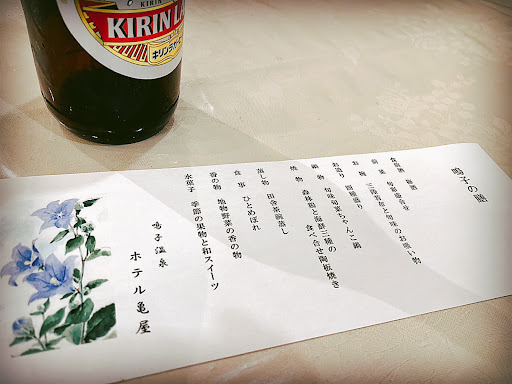 KIRIN
KIRIN LA
キリンラガー
鳴子の膳
食前酒 梅酒
前菜 旬彩盛合せ
三陸若布と旬味のお吸い物
お椀
お造り 四種盛り
鍋物 旬味旬菜ちゃんこ鍋
焼物 森林鶏と海鮮三種の
食べ合せ陶板焼き
蒸し物 田舎茶碗蒸し
食事 ひとめぼれ
香の物 地物野菜の香の物
水菓子 季節の果物と和スイーツ
鳴子温泉
ホテル亀屋